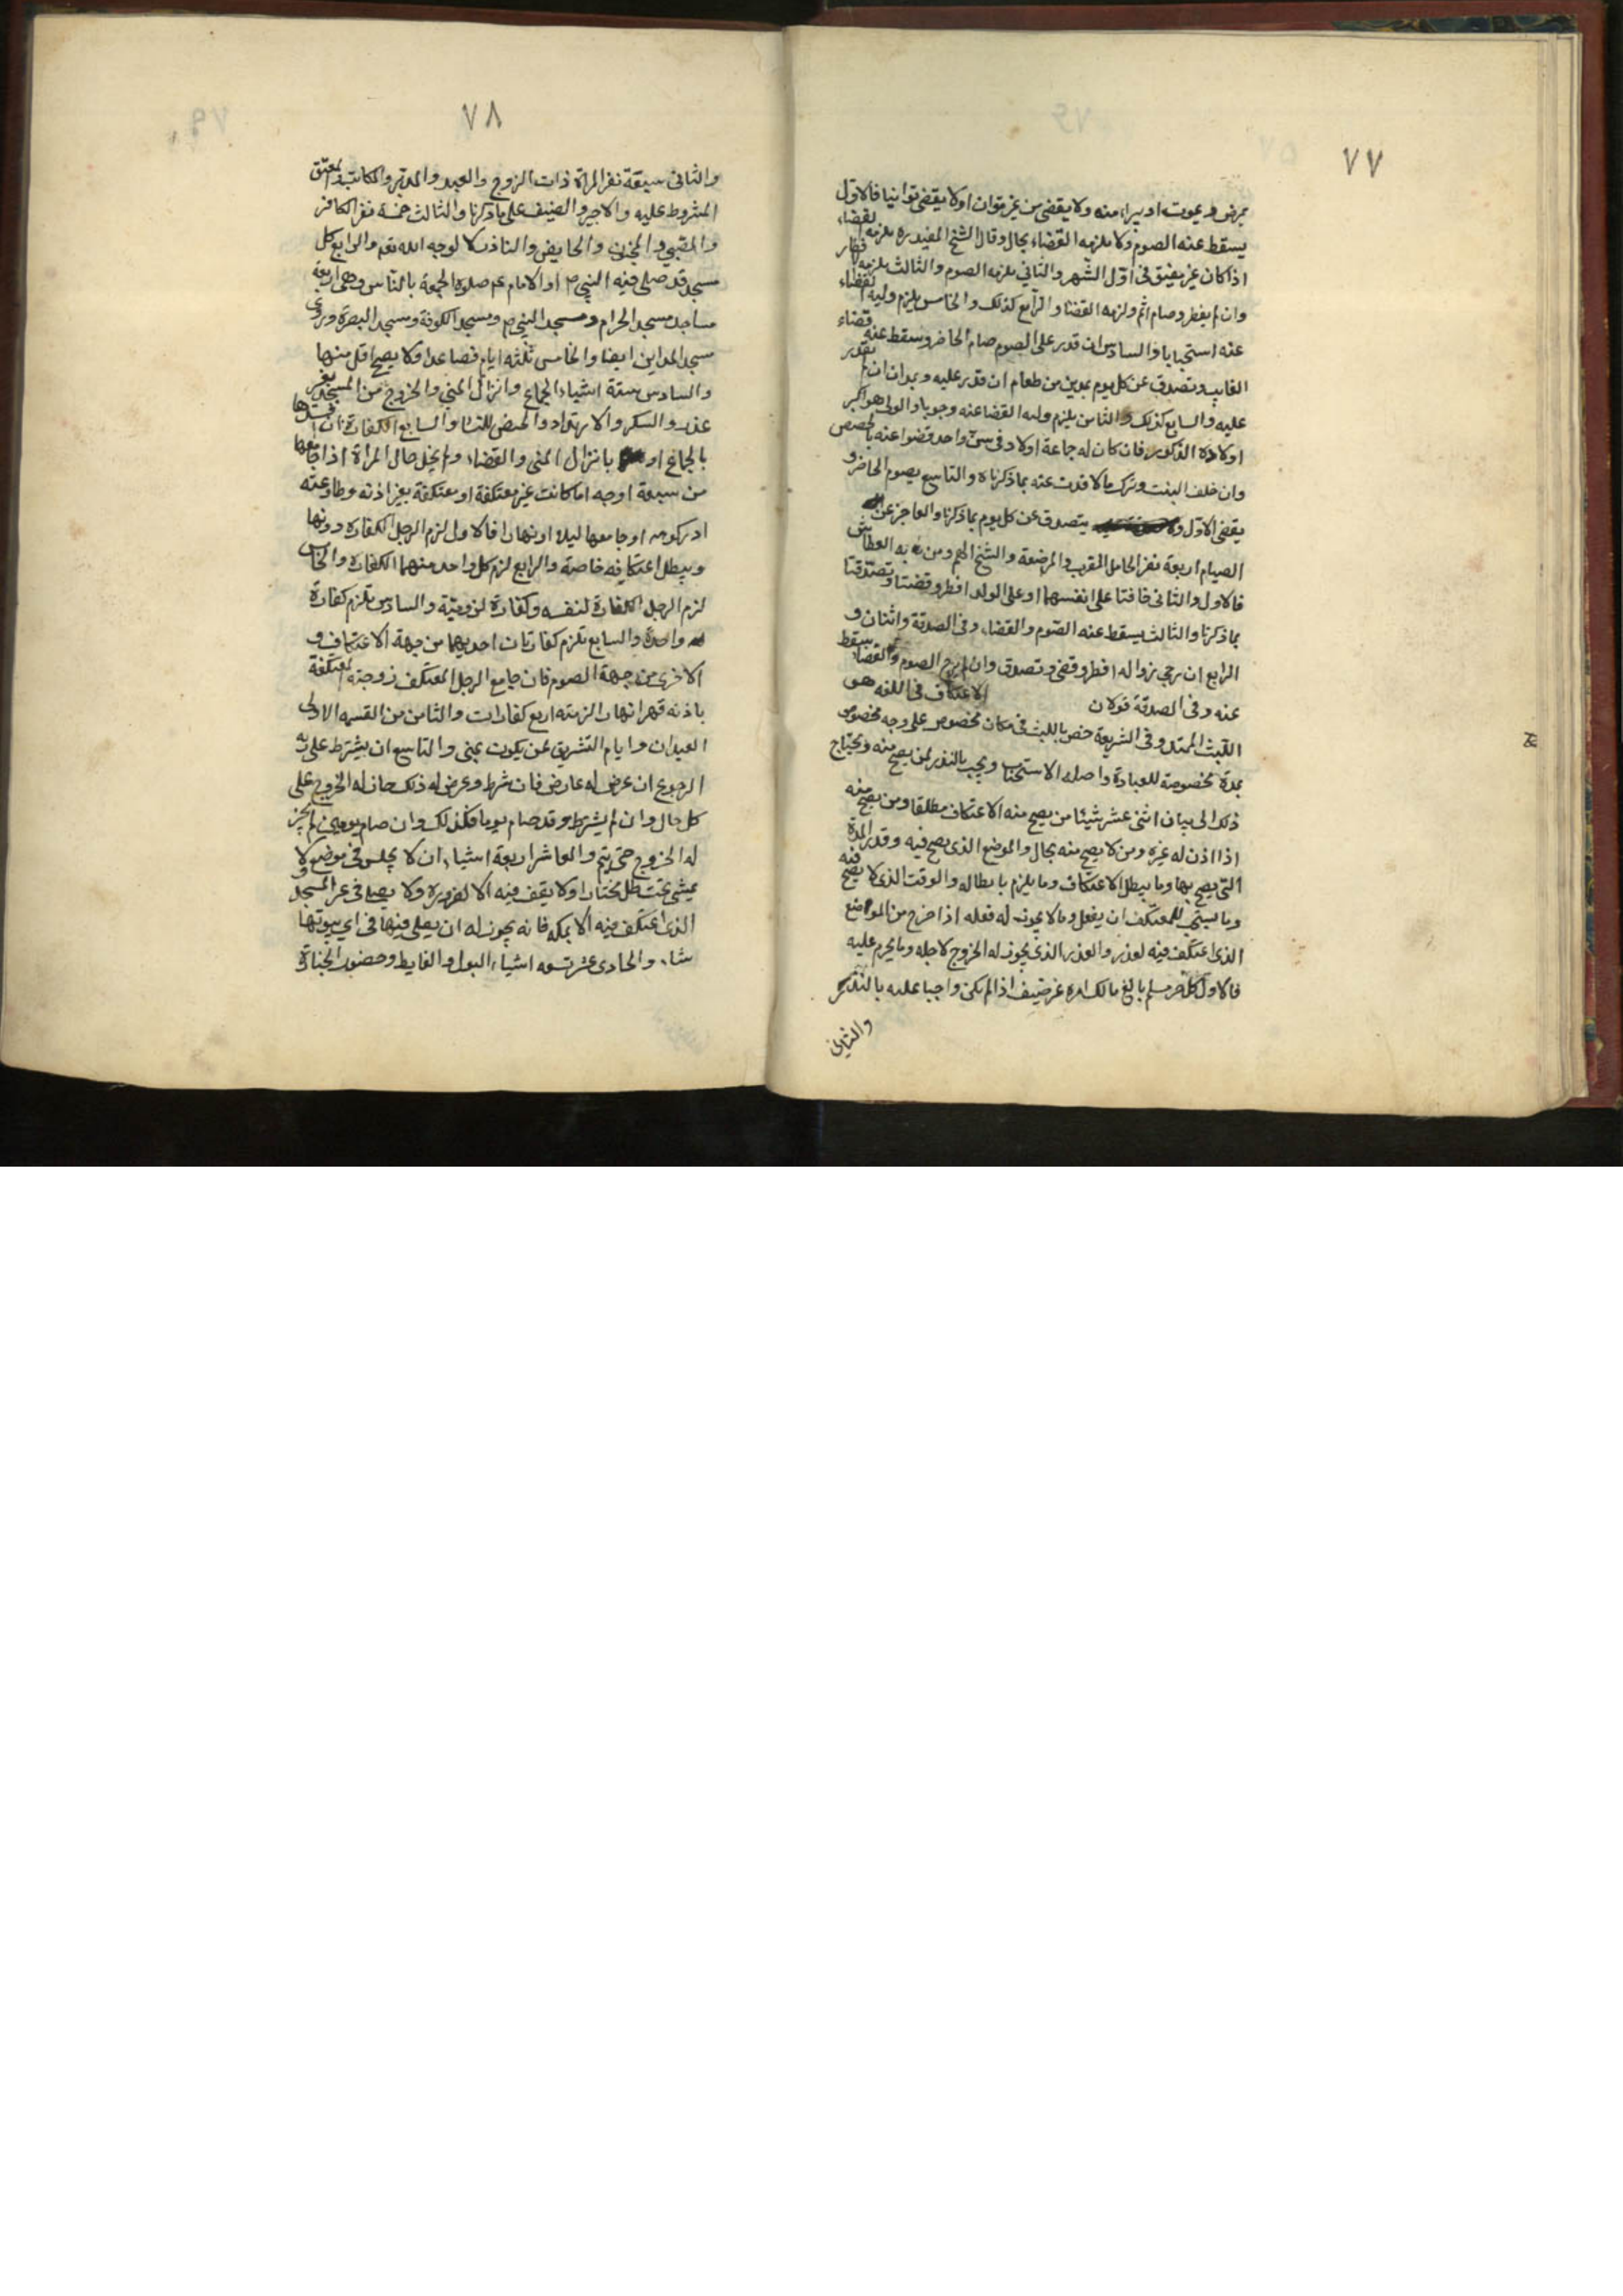 ٧٧
يمرض ويموت او يبراء منه ولا يقضى من غير توان اولا يقضى توانيا فالاول
يسقط عنه الصوم ولا يلزمه القضاء بحال وقال الشيخ المفيد ره يلزمه القضاء
اذا كان غير مفيق فى اول الشهر والثانى يلزمه الصوم والثالث يلزمه
وان لم يفطر وصام اثم ولزمه القضا والرابع كذلك والخامس يلزم وليه القضاء
عنه استحبابا والسادس ان قدر على الصوم صام الحاضر وسقط عنه قضاء
الفايت وتصدق عن كل يوم بمدين من طعام ان قدر عليه وبمد ان لم يقدر
عليه والسابع كذلك والثامن يلزم وليه القضا عنه وجوبا والولى هو اكبر
اولاده الذكور فان كان له جماعة اولاد فى سن واحد قضوا عنه بالحصص
وان خلف البنت وترك مالا فدت عنه بما ذكرناه والتاسع يصوم الحاضر و
يقضى الاول و يتصدق عن كل يوم بما ذكرنا والعاجز عن
الصيام اربعة نفر الحامل المقرب والمرضعة والشيخ الهم ومن به العطاش
فالاول والثانى خافتا على انفسهما او على الولد افطر وقضتا وتصدقتا
بما ذكرنا والثالث يسقط عنه الصوم والقضاء وفى الصدقة واثنان و
الرابع ان رجى زواله افطر وقضى وتصدق وان لم يرج الصوم والقضا يسقط
عنه وفى الصدقة قولان الاعتكاف فى اللغه هو
اللبث الممتد وفى الشريعة خص باللبث فى مكان مخصوص على وجه مخصوص
بمدة مخصوصة للعبادة واصله الاستحباب ويجب بالنذر لمن يصح منه ويحتاج
ذلك الى بيان اثنى عشر شيئا من يصح منه الاعتكاف مطلقا ومن يصح منه
اذا اذن له غيره ومن لا يصح منه بحال والموضع الذى يصح فيه وقدر المدة
التى يصح بها وما يبطل الاعتكاف وما يلزم بابطاله والوقت الذى لا يصح فيه
وما يستحب للمعتكف ان يفعل وما لا يجوز له فعله اذا خرج من المواضع
الذى اعتكف فيه لعذر والعذر الذى يجوز له الخروج لاجله وما يحرم عليه
فالاول كل حر مسلم بالغ مالك امره غير ضيف اذا لم يكن واجبا عليه بالنذر
والثانى
٧٨
والثانى سبعة نفر المراة ذات الزوج والعبد والمدبر والمكاتب والمعتق
المشروط عليه والاجير والضيف على ما ذكرنا والثالث خمسة نفر الكافر
والصبى والمجنون والحايض والناذر لا لوجه الله تعم والرابع كل
مسجد قد صلى فيه النبى ص او الامام عم صلوة الجمعة بالناس وهى اربعة
مساجد مسجد الحرام ومسجد النبى ص ومسجد الكوفة ومسجد البصرة وروى
مسجد المداين ايضا والخامس ثلثه ايام فصاعدا ولا يصح اقل منها
والسادس ستة اشياء الجماع وانزال المنى والخروج من المسجد بغير
عذر والسكر والارتداد والحيض للنساء والسابع الكفارة ان افسدها
بالجماع او بانزال المنى والقضاء ولم يخل حال المراة اذا جامعها
من سبعة اوجه اما كانت غير معتكفة او معتكفة بغير اذنه وطاوعته
او كرهه او جامعها ليلا او نهارا فالاول لزم الرجل الكفارة دونها
ويبطل اعتكافه خاصة والرابع لزم كل واحد منهما الكفارة والخامس
لزم الرجل الكفارة لنفسه وكفارة لزوجته والسادس تلزم كفارة
واحدة والسابع تلزم كفارتان احديهما من جهة الاعتكاف و
الاخرى من جهة الصوم فان جامع الرجل المعتكف زوجته المعتكفة
باذنه قهرا نهارا لزمته اربع كفارات والثامن من القسمه الاولى
العيدان وايام التشريق لمن يكون بمنى والتاسع ان يشترط على ربه
الرجوع ان عرض له عارض فان شرط وعرض له ذلك جاز له الخروج على
كل حال وان لم يشترط وقد صام يوما فكذلك وان صام يومين لم يجز
له الخروج حتى يتم والعاشر اربعة اشياء ان لا يجلس فى موضع ولا
يمشى تحت ظل مختارا ولا يقف فيه الا لضرورة ولا يصلى فى غير المسجد
الذى اعتكف فيه الا بمكه فانه يجوز له ان يصلى فيها فى اى بيوتها
شاء والحادى عشر تسعه اشياء البول والغايط وحضور الجنازة